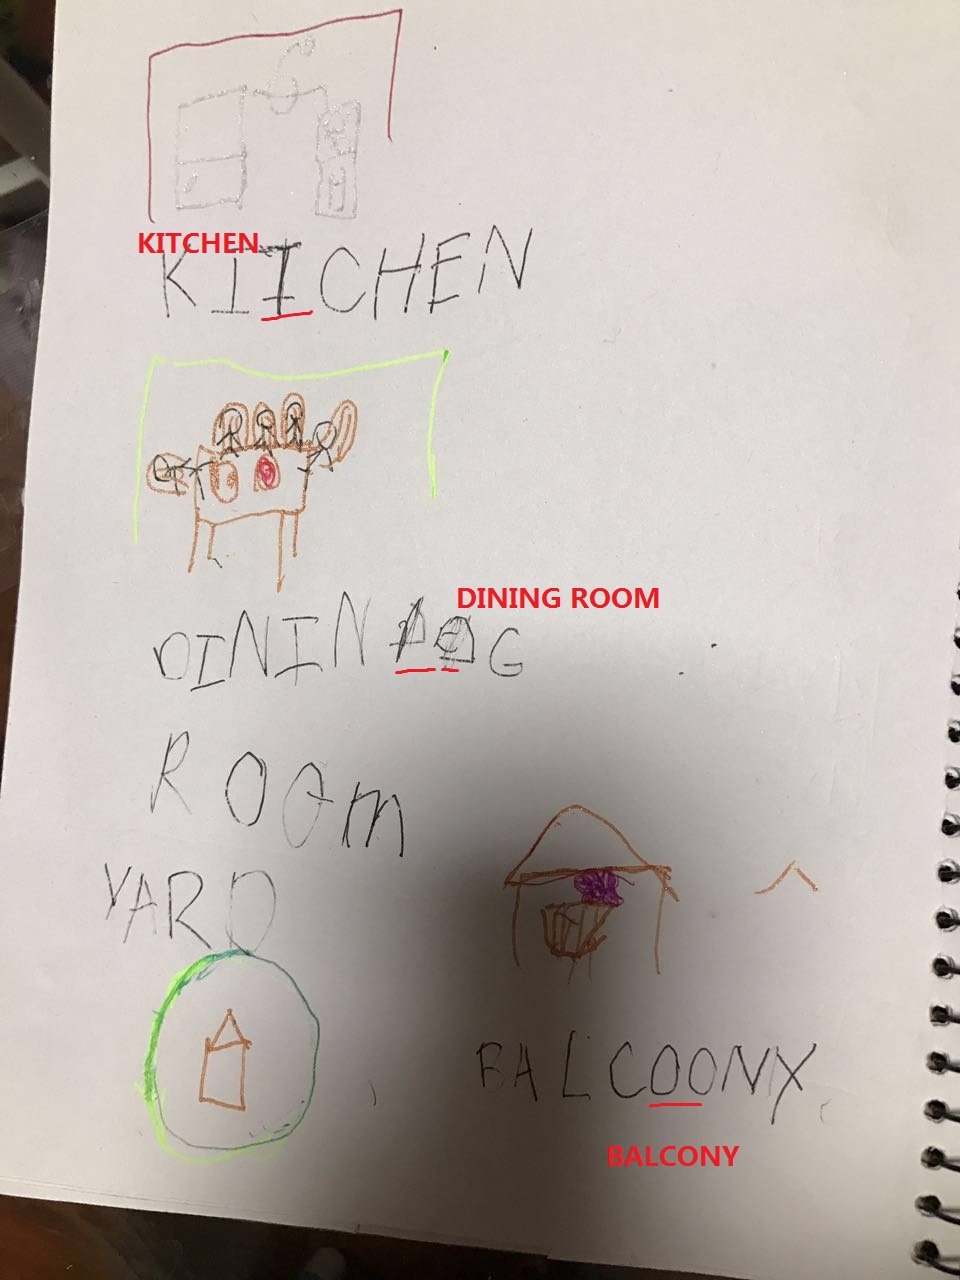 KITCHEN
KITCHEN
DINING ROOM
DINING
ROOM
YARD
BALCOONY
BALCONY